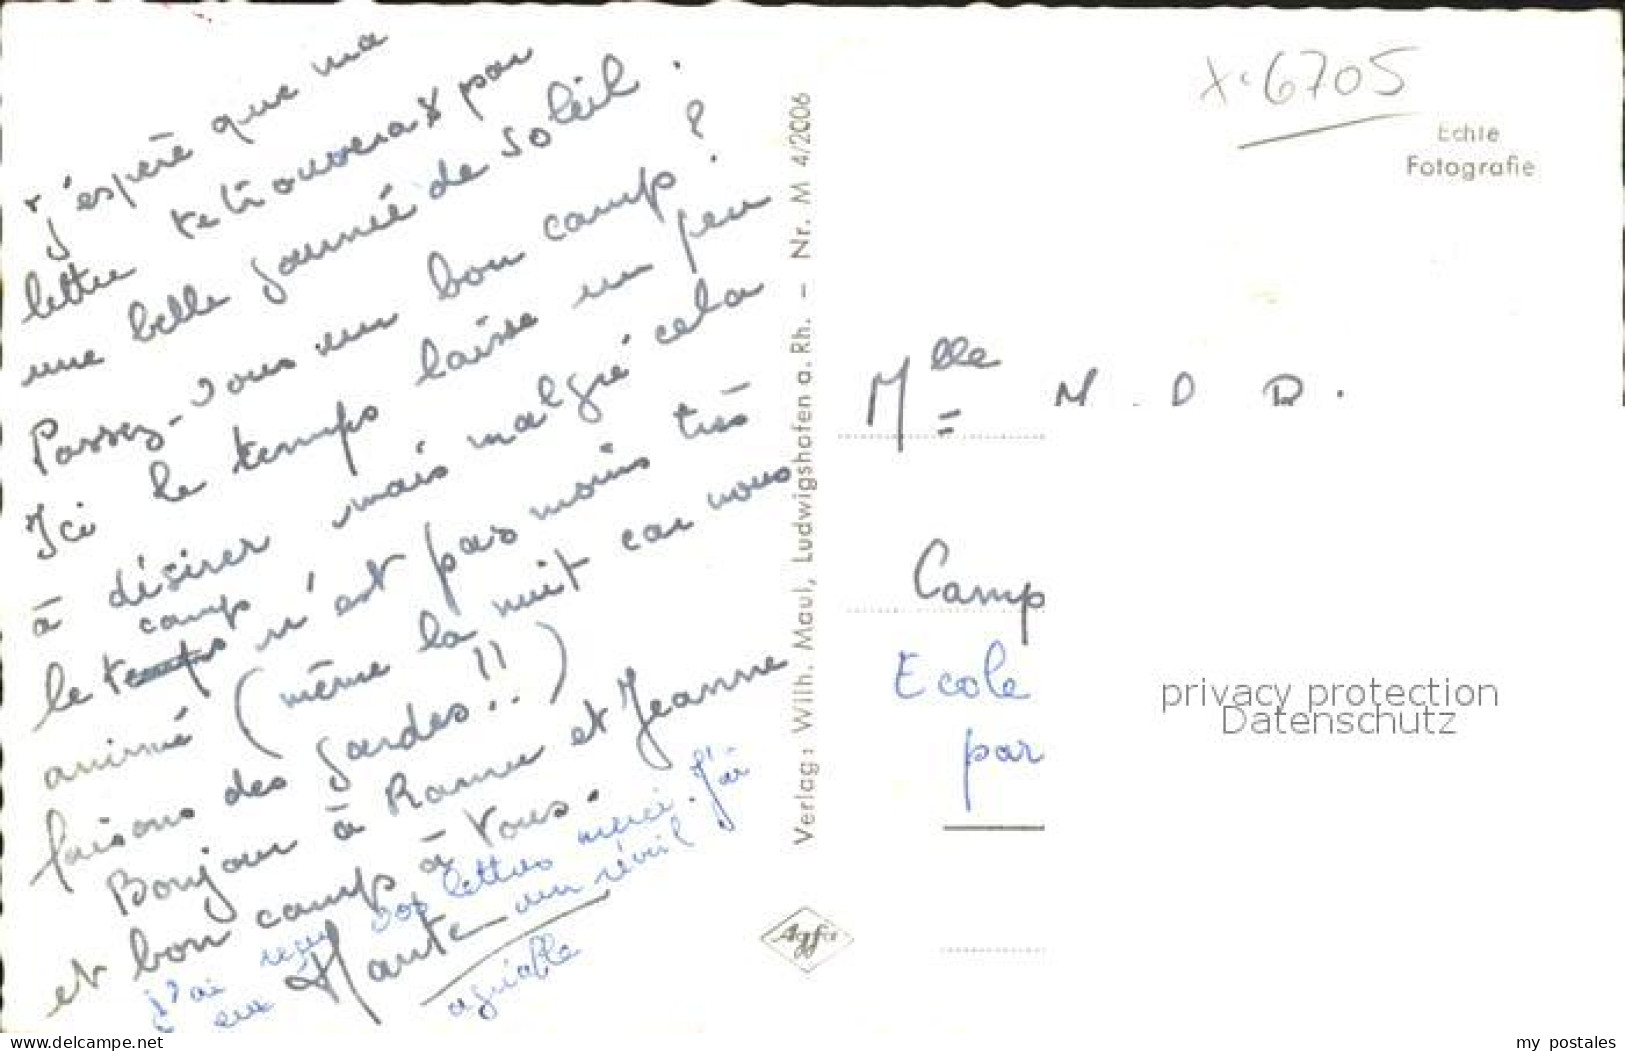 j'espère que ma
lettre te trouvera par
une belle journée de soleil.
Passez-vous un bon camp?
Ici le temps laisse un peu
à désirer mais malgré cela
camp
le temps n'est pas moins très
animé (même la nuit car nous
faisons des gardes!!)
Bonjour à et Jeanne
et bon camp à vous.
j'ai reçu vos lettres merci. J'ai
eu un réveil
agréable
Verlag: Wilh. Maul, Ludwigshafen a. Rh. - Nr. M 4/2006
Agfa
x.6705
Echte
Fotografie
Mlle
Camp
Ecole
par
privacy protection
Datenschutz
my-postcard.com
my postales